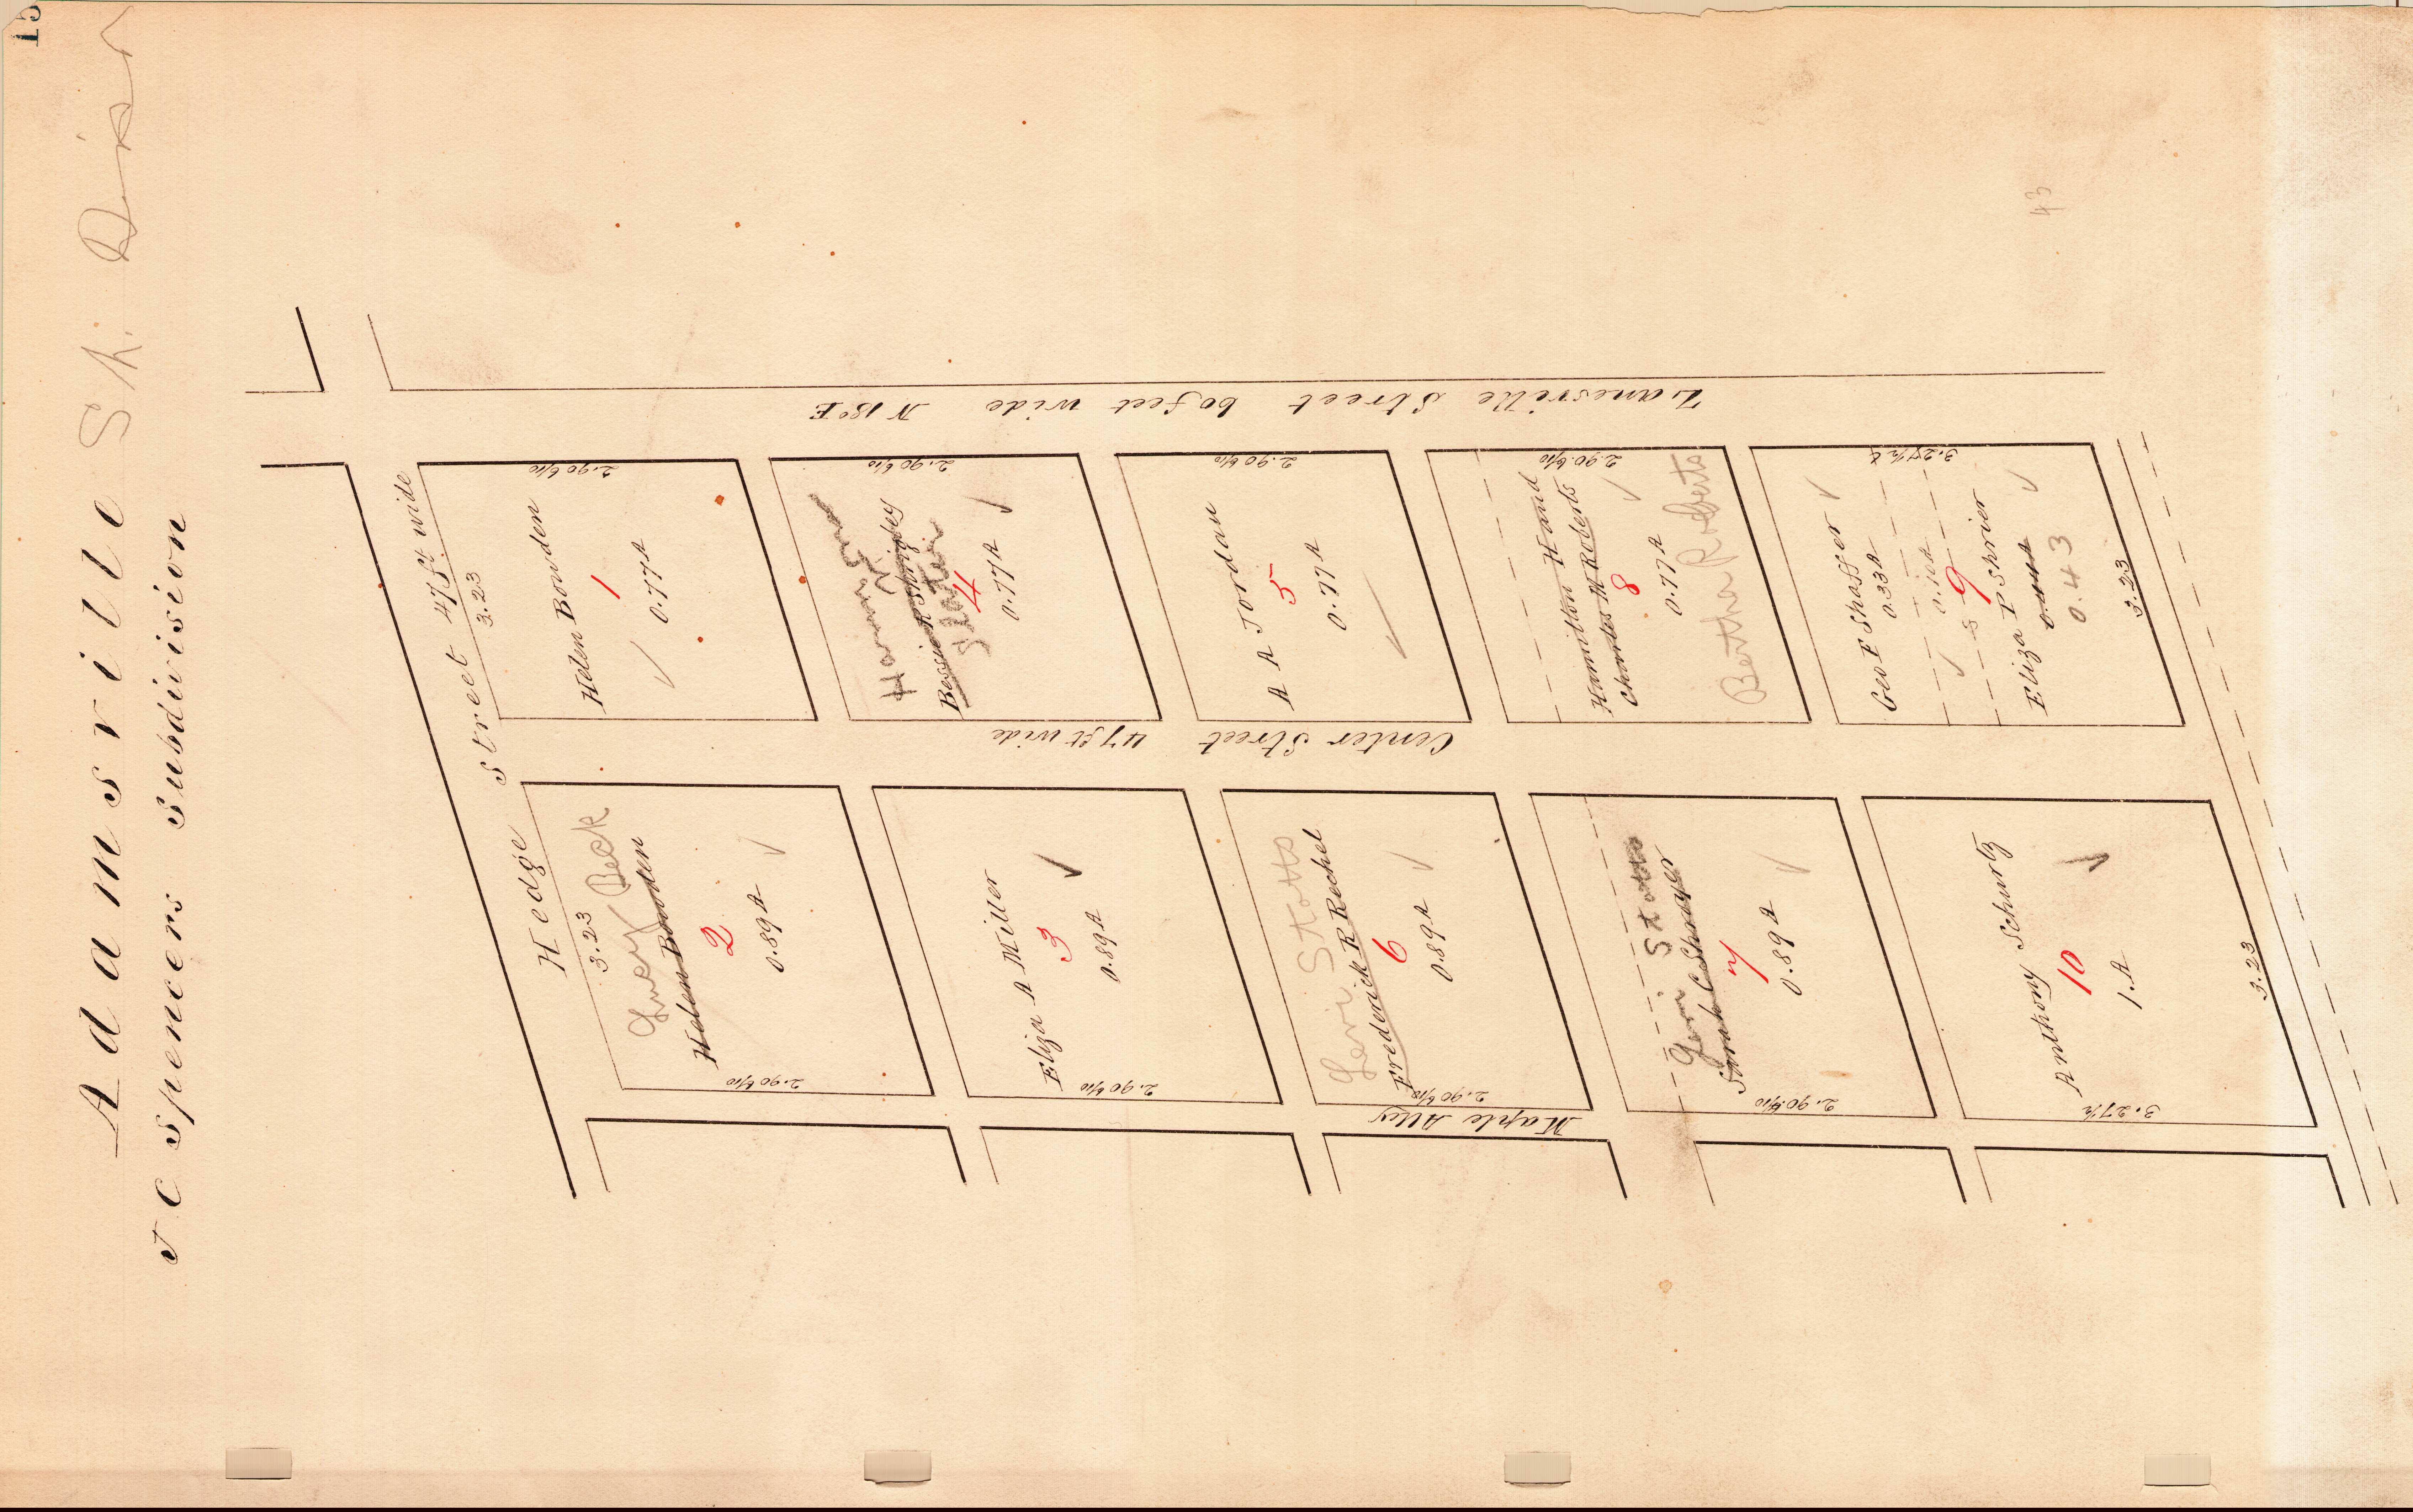 15
Adamsville Sh. Dist
J C Spencers Subdivision
Hedge Street 47 ft. wide
Zanesville Street 60 feet wide N 18° E
Center Street 47 ft wide
Maple Alley
3.23
2.90 6/10
Helen Bowden
1
0.77 A
2.90 6/10
Bessie R Shrigley
4
0.77 A
2.90 6/10
A A Jordan
5
0.77 A
2.90 6/10
Hamilton Hand
Charles M Roberts
8
0.77 A
Bertha Roberts
3.27 1/2
Geo F Shaffer
0.33 A
9
Eliza P Shrier
0.43
3.23
3.23
Lucy Beck
Helen Bowden
2
0.89 A
2.90 6/10
Eliza A Miller
3
0.89 A
2.90 6/10
Levi Stotts
Frederick R Rechel
6
0.89 A
2.90 6/10
Stotts
Sarah C Shroyer
7
0.89 A
2.90 6/10
Anthony Schurtz
10
1. A
3.27 1/2
3.23
43